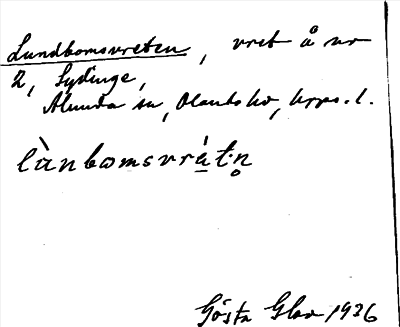 Lundbomsvreten, vret å nr
2, Sydinge,
Alunda sn, Olands hd, Upps. l.
lànbωmsvrɛ́t·n̥
Gösta Glas 1926